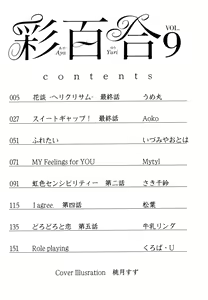 彩百合 VOL. 9
あや Aya ゆり Yuri
contents
005 花談 -ヘリクリサム- 最終話 うめ丸
027 スイートギャップ! 最終話 Aoko
051 ふれたい いづみやおとは
071 MY Feelings for YOU Mytyl
091 虹色センシビリティー 第二話 さき千鈴
115 I agree. 第四話 松葉
135 どろどろと恋 第五話 牛乳リンダ
151 Role playing くろば・U
Cover Illustration 桃月すず